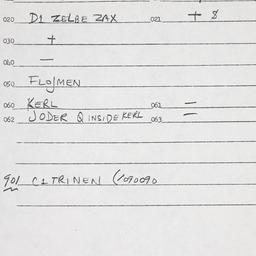 020 D1 ZELBE ZAX 021 + 8
030 +
040 —
050 FLOJMEN
060 KERL 061 —
062 JODER Q INSIDE KERL 063 —
901 C1TRINEN (1090090